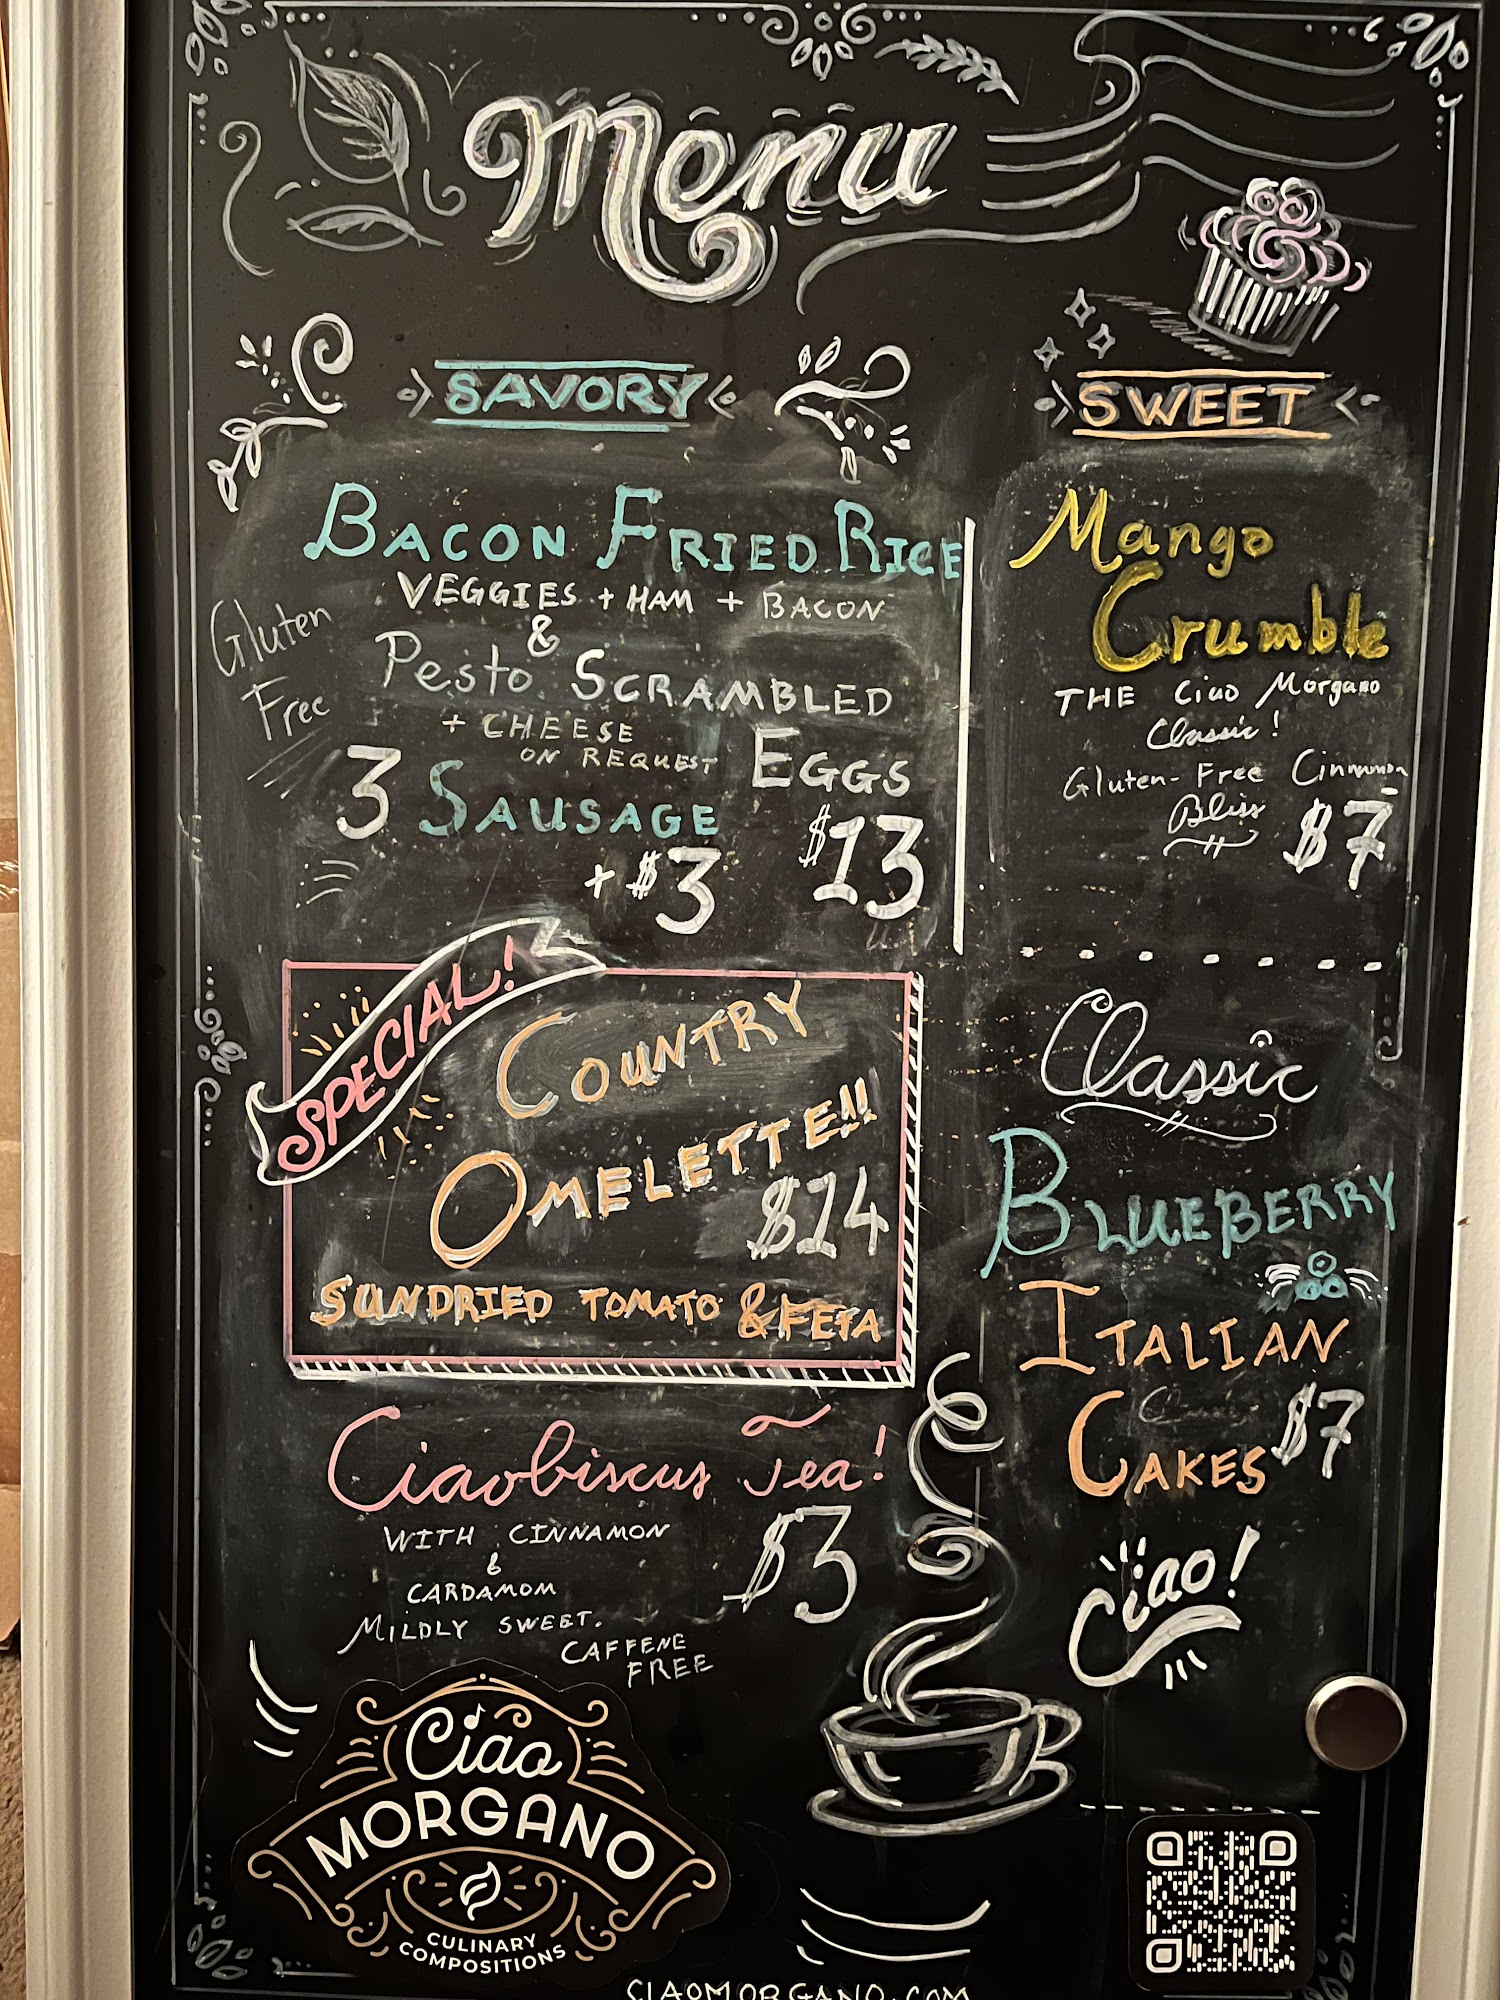 Menu
SAVORY
BACON FRIED RICE
VEGGIES + HAM + BACON
&
Pesto SCRAMBLED
+ CHEESE
ON REQUEST
EGGS
Gluten
Free
3 SAUSAGE
+ $3
$13
SPECIAL!
COUNTRY
OMELETTE!!
$14
SUNDRIED TOMATO & FETA
Ciaobiscus Tea!
WITH CINNAMON
&
CARDAMOM
MILDLY SWEET.
CAFFENE
FREE
$3
SWEET
Mango
Crumble
THE Ciao Morgano
Classic!
Gluten-Free Cinnamon
Bliss
$7
Classic
BLUEBERRY
ITALIAN
CAKES $7
Ciao!
Ciao
MORGANO
CULINARY
COMPOSITIONS
CIAOMORGANO.COM